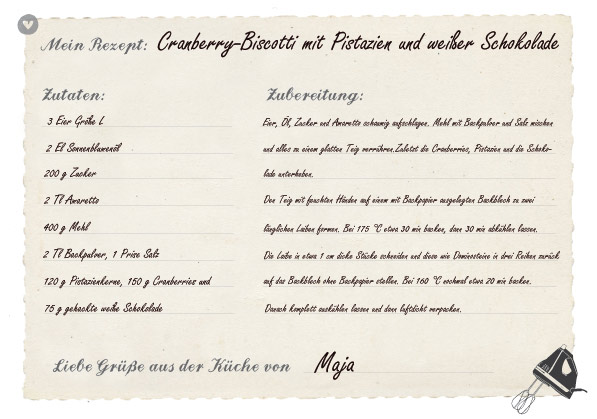 Mein Rezept: Cranberry-Biscotti mit Pistazien und weißer Schokolade
Zutaten:
3 Eier Größe L
2 El Sonnenblumenöl
200 g Zucker
2 Tl Amaretto
400 g Mehl
2 Tl Backpulver, 1 Prise Salz
120 g Pistazienkerne, 150 g Cranberries und
75 g gehackte weiße Schokolade
Zubereitung:
Eier, Öl, Zucker und Amaretto schaumig aufschlagen. Mehl mit Backpulver und Salz mischen
und alles zu einem glatten Teig verrühren.Zuletzt die Cranberries, Pistazien und die Schoko-
lade unterheben.
Den Teig mit feuchten Händen auf einem mit Backpapier ausgelegten Backblech zu zwei
länglichen Laiben formen. Bei 175 °C etwa 30 min backen, dann 30 min abkühlen lassen.
Die Laibe in etwa 1 cm dicke Stücke schneiden und diese wie Dominosteine in drei Reihen zurück
auf das Backblech ohne Backpapier stellen. Bei 160 °C nochmal etwa 20 min backen.
Danach komplett auskühlen lassen und dann luftdicht verpacken.
Liebe Grüße aus der Küche von Maja